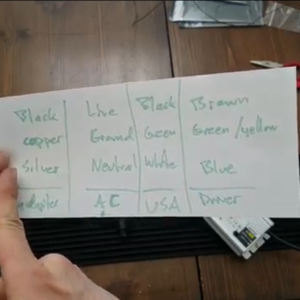 Black Live Black Brown
copper Ground Green Green/yellow
Silver Neutral White Blue
adapter AC USA Driver